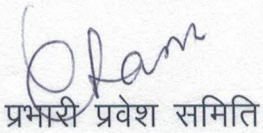 प्रभारी प्रवेश समिति